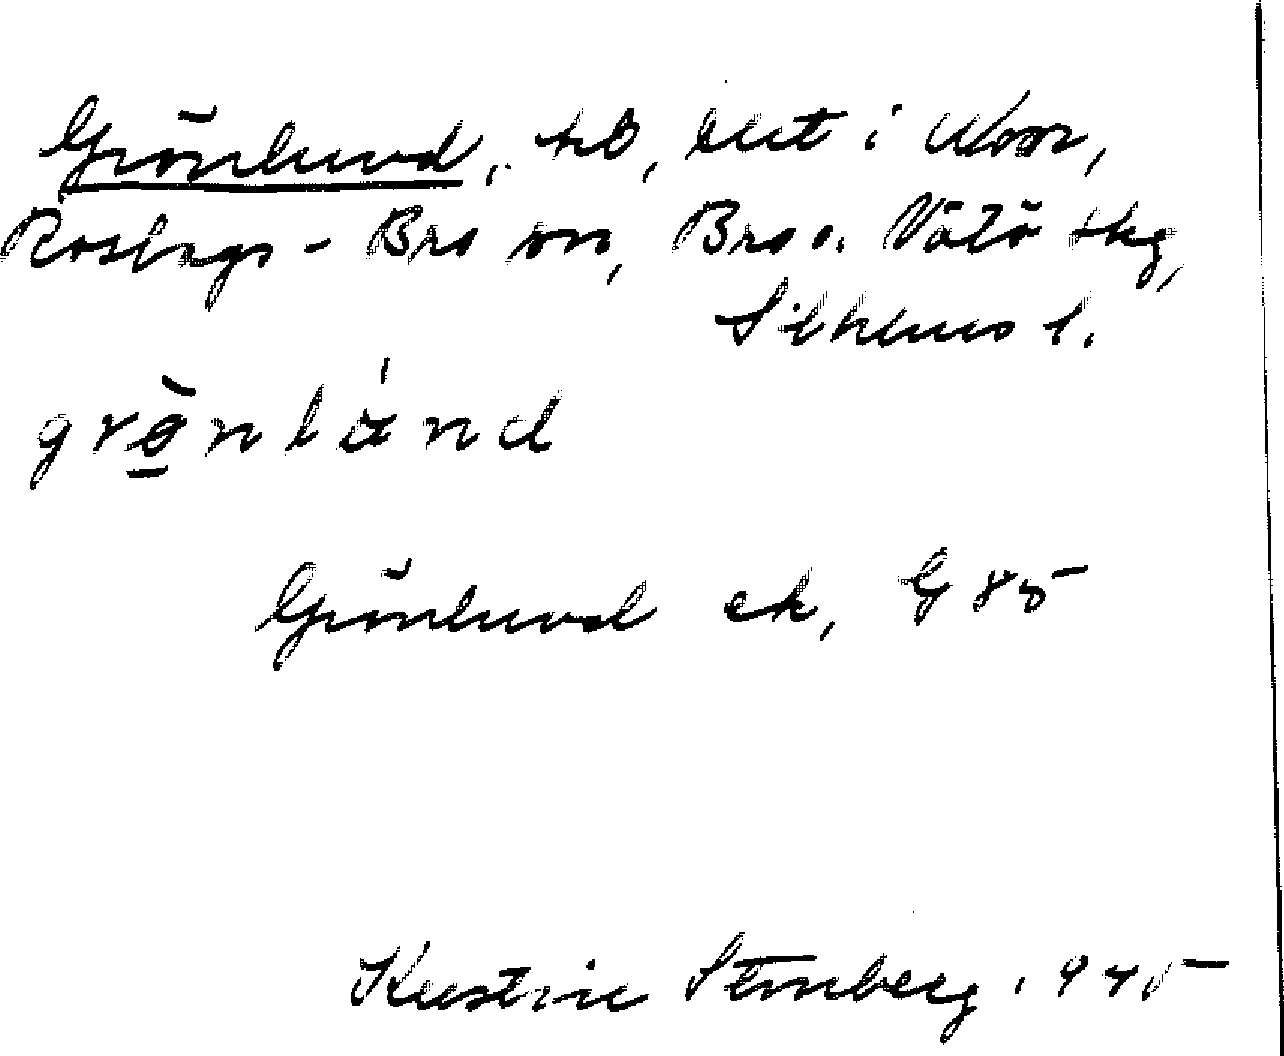 Grönlund, tb, bet i Norr,
Roslags-Bro sn, Bro o. Vätö skg,
Sthlms l.
grönlánd
Grönlund ek, G 85
Kerstin Stenberg 1945